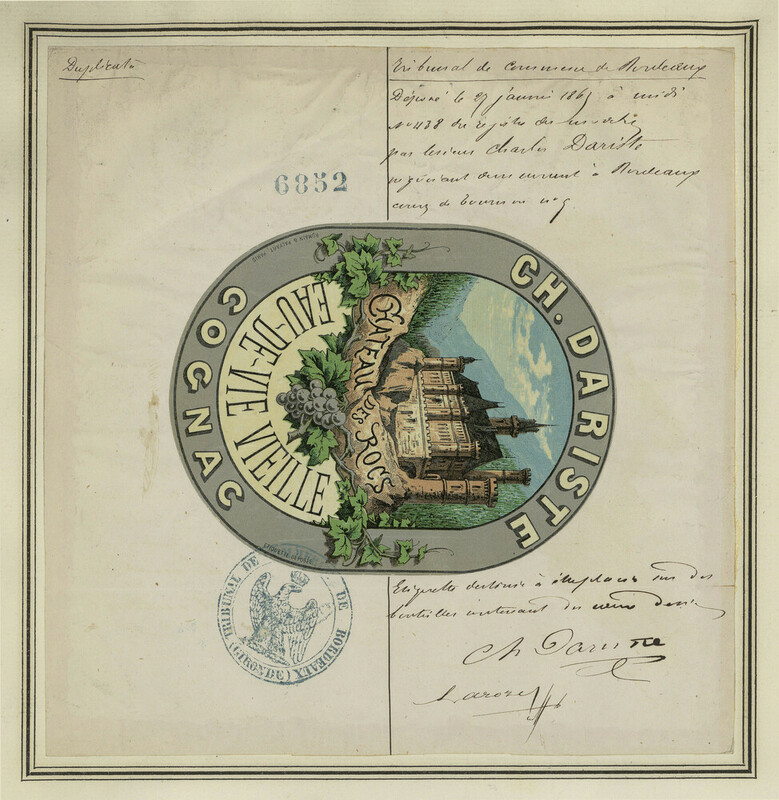 Duplicata
Tribunal de Commerce de Bordeaux
Déposé le 27 janvier 186 à midi
No 438 du registre
par le sieur Charles Dariste
négociant demeurant à Bordeaux
cours de Tournon no 9
6852
CH. DARISTE
CHÂTEAU DES ROCS
EAU-DE-VIE VIEILLE
COGNAC
TRIBUNAL DE DE BORDEAUX
(GIRONDE)
Etiquette destinée à être placée sur des
bouteilles contenant du
Ch Dariste